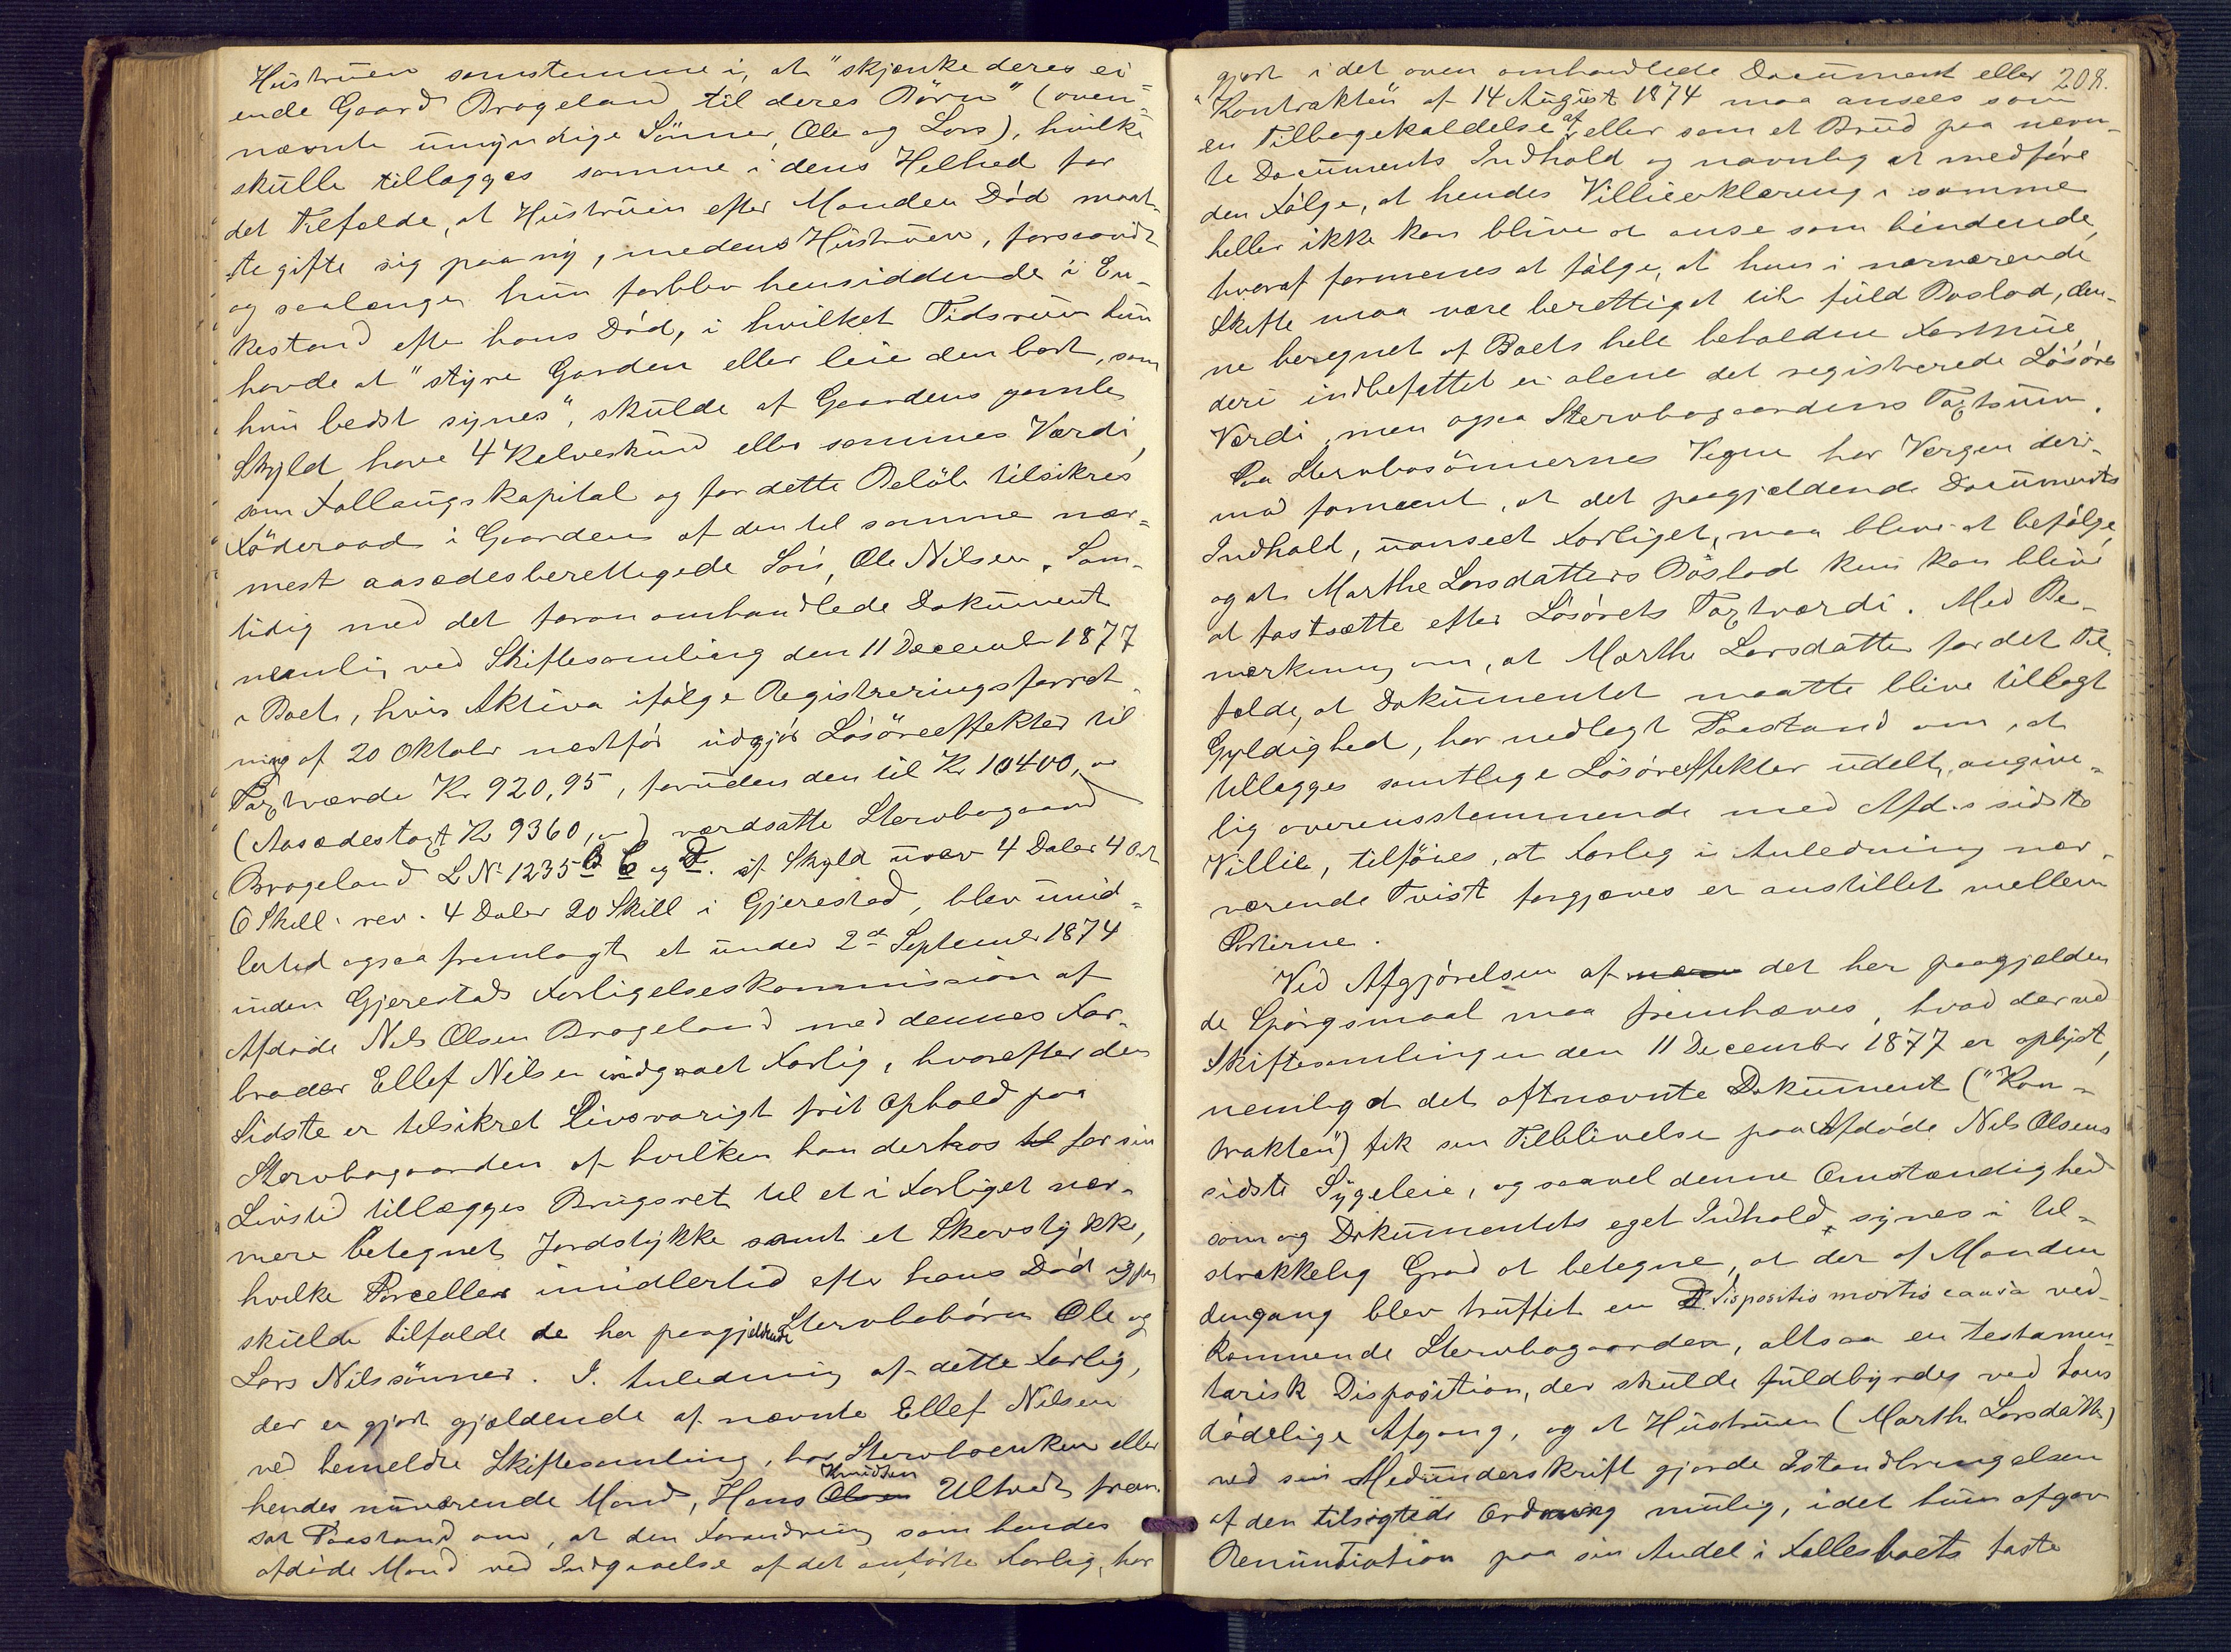 Hustruen samstemme i, at "skjænke deres ei-
"ende Gaard Brageland til deres Børn" (oven-
nævnte umyndige Sønner, Ole og Lars), hvilke
skulle tillægges samme i dens Helhed for
det Tilfælde, at Hustruen efter Manden Død maat-
te gifte sig paa ny, medens Hustruen, forsaavidt
og saalænge hun forblev hensiddende i En-
kestand efter hans Død, i hvilket Tidsrum hun
havde at "styre Gaarden eller leie den bort, som
hun bedst synes", skulde af Gaardens gamle
Skyld have 4 Kalveskind eller sammes Værdi,
som Follaugskapital og for dette Beløb tilsikres
Föderaad i Gaarden af den til samme nær-
mest aasædesberettigede Søn, Ole Nilsen. Sam-
tidig med det foran omhandlede Dokument
nemlig ved Skiftesamling den 11 December 1877
i Boet, hvis Aktiva ifølge Registreringsforret-
ning af 20 Oktober næstfør udgjør Løsøreeffekter til
Taxtværdi Kr 920,95, foruden den til Kr 10400,"
(Aasædestaxt Kr 9360,") værdsatte Stervbogaard
Brageland L No 1235 b C og d. af Skyld urev 4 Daler 4 Ort
6 Skill. rev. 4 Daler 20 Skill i Gjerestad, blev imid-
lertid ogsaa fremlagt et under 2d September 1874
inden Gjerestads Forligelseskommission af
Afdøde Nils Olsen Brageland med dennes Far-
broder Ellef Nilsen indgaaet Forlig, hvorefter den
Sidste er tilsikret Livsvarigt frit Ophold paa
Stervbogaarden af hvilken han derhos til for sin
Livstid tillægges Brugsret til et i Forliget nær-
mere betegnet Jordstykke samt et Skovstykke,
hvilke Parceller imidlertid efter hans Død igjen
skulde tilfalde de her paagjældende Stervbobørn Ole og
Lars Nilssønner. I Anledning af dette Forlig,
der er gjort gjældende af nævnte Ellef Nilsen
ved bemeldte Skiftesamling, har Stervboenken eller
hendes nuværende Mand, Hans Olsen Knudsen Ulltvedt frem-
sat Paastand om, at den Forandring som hendes
afdøde Mand ved Indgaaelse af det anførte Forlig, har
208.
gjort i det oven omhandlede Document eller
"Kontrakten" af 14 August 1874 maa ansees som
en Tilbagekaldelse af eller som et Brud paa nævn-
te Documents Indhold og navnlig at medføre
den Følge, at hendes Villieerklæring i samme
heller ikke kan blive at anse som bindende,
hvoraf formenes at følge, at hun i nærværende
Skifte maa være berettiget til fuld Boslod, den-
ne beregnet af Boets hele beholdne Formue
deri indbefattet ei alene det registrerede Løsøres
Værdi, men ogsaa Stervbogaardens Taxtsum.
Paa Stervbosønnernes Vegne har Vergen deri-
mod formeent, at det paagjældende Documents
Indhold, uanseet Forliget, maa blive at befølge,
og at Marthe Larsdatters Boslod kun kan blive
at fastsætte efter Løsørets Taxtværdi. Med Be-
mærkning om, at Marthe Larsdatter for det Til-
fælde, at Dokumentet maatte blive tillagt
Gyldighed, har nedlagt Paastand om, at
tillægges samtlige Løsøreeffekter udelt, angive-
lig overensstemmende med Afd.s sidste
Villie, tilføies, at Forlig i Anledning nær-
værende Tvist forgjæves er anstillet mellem
Parterne.
Ved Afgjørelsen af det her paagjælden
de Spørgsmaal maa fremhæves, hvad der ved
Skiftesamlingen den 11 December 1877 er oplyst,
nemlig at det oftnævnte Dokument ("Kon-
trakten") fik sin Tilblivelse paa Afdøde Nils Olsens
sidste Sygeleie, og saavel denne Omstændighed
som og Dokumentets eget Indhold synes i til-
strækkelig Grad at betegne, at der af Manden
dengang blev truffet en Dispositio mortis causa ved-
kommende Stervbogaarden, altsaa en testamen-
tarisk Disposition, der skulde fuldbyrdes ved hans
dødelige Afgang, og at Hustruen (Marthe Larsdatter)
ved sin Medunderskrift gjorde Istandbringelsen
af den tilsigtede Ordning mulig, idet hun afgav
Renuntiation paa sin Andel i Fællesboets faste